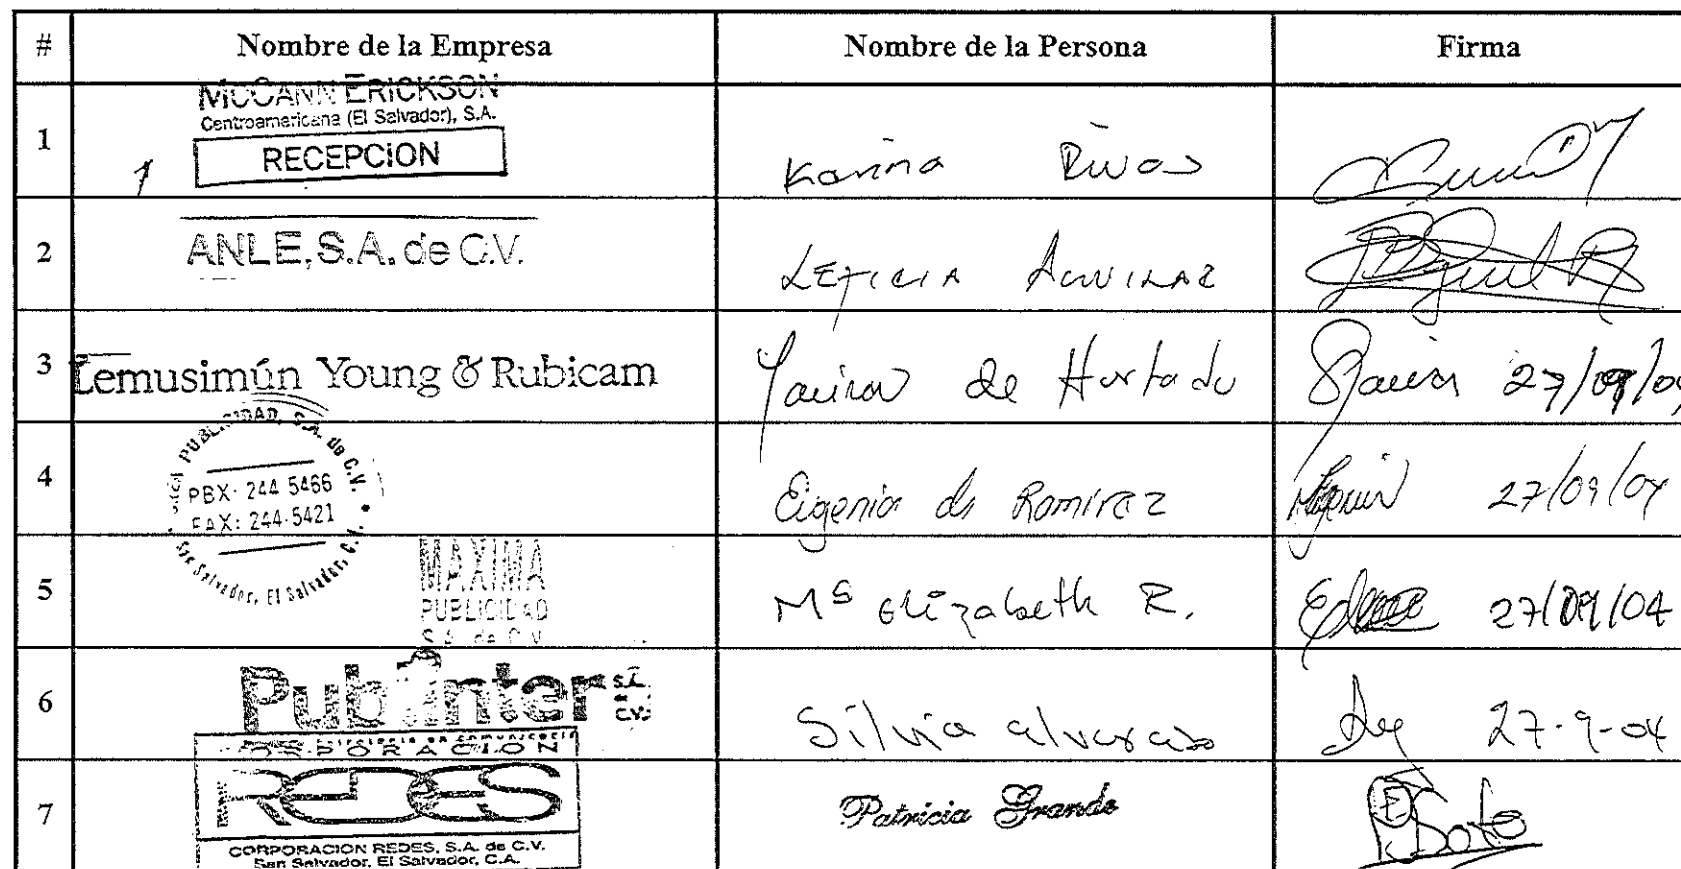 # Nombre de la Empresa Nombre de la Persona Firma
McCANN ERICKSON
Centroamericana (El Salvador), S.A.
RECEPCION
1 1 Karina Rivas
2 ANLE, S.A. de C.V. LETICIA AGUILAR
3 Lemusimún Young & Rubicam Yanira de Hurtado 27/09/04
PUBLICIDAD, S.A. de C.V.
PBX: 244 5466
FAX: 244-5421
San Salvador, El Salvador, C.A.
4 Eugenia de Ramirez 27/09/04
MAXIMA
PUBLICIDAD
S.A. de C.V.
5 Mª Elizabeth R. 27/09/04
6 Publinter S.A. de C.V. Silvia alvarado 27-9-04
CORPORACION
7 REDES Patricia Grande
CORPORACION REDES, S.A. de C.V.
San Salvador, El Salvador, C.A.